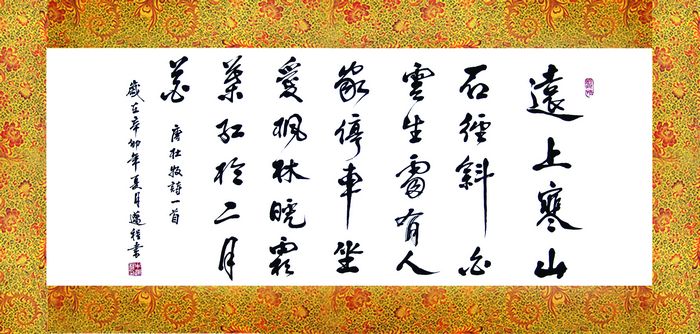 遠上寒山
石徑斜白
雲生處有人
家停車坐
愛楓林晚霜
葉紅於二月
花
唐杜牧詩一首
歲在辛卯年夏月書